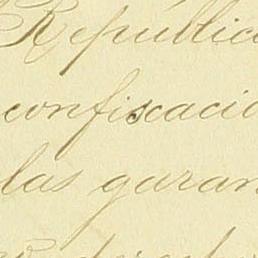 República
confiscació
las garan